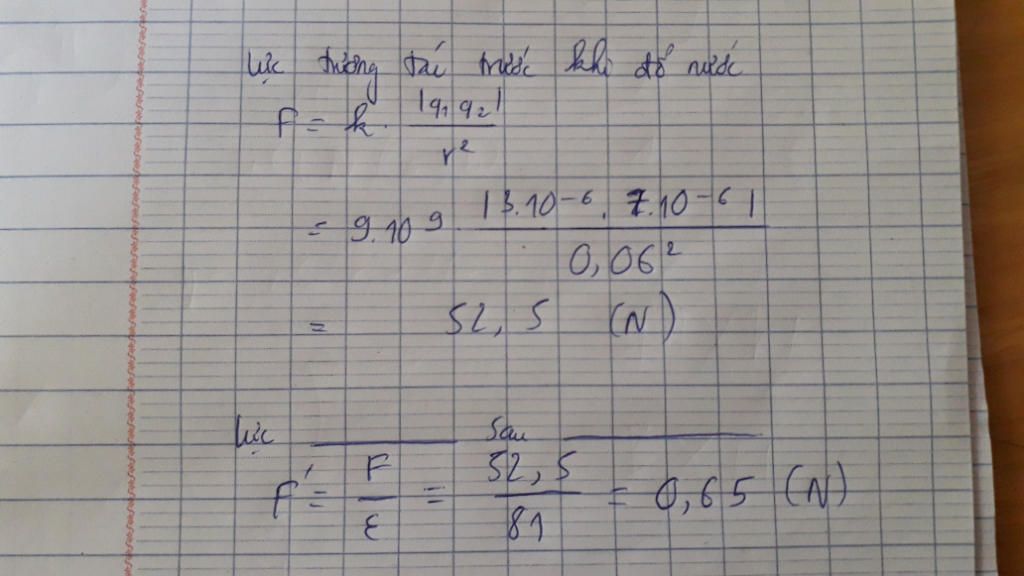 Lực tương tác trước khi đổ nước
F = k. |q₁ q₂| / r²
= 9.10⁹ |3.10⁻⁶. 7.10⁻⁶| / 0,06²
= 52,5 (N)
Lực ——— sau ———
F' = F / ε = 52,5 / 81 = 0,65 (N)